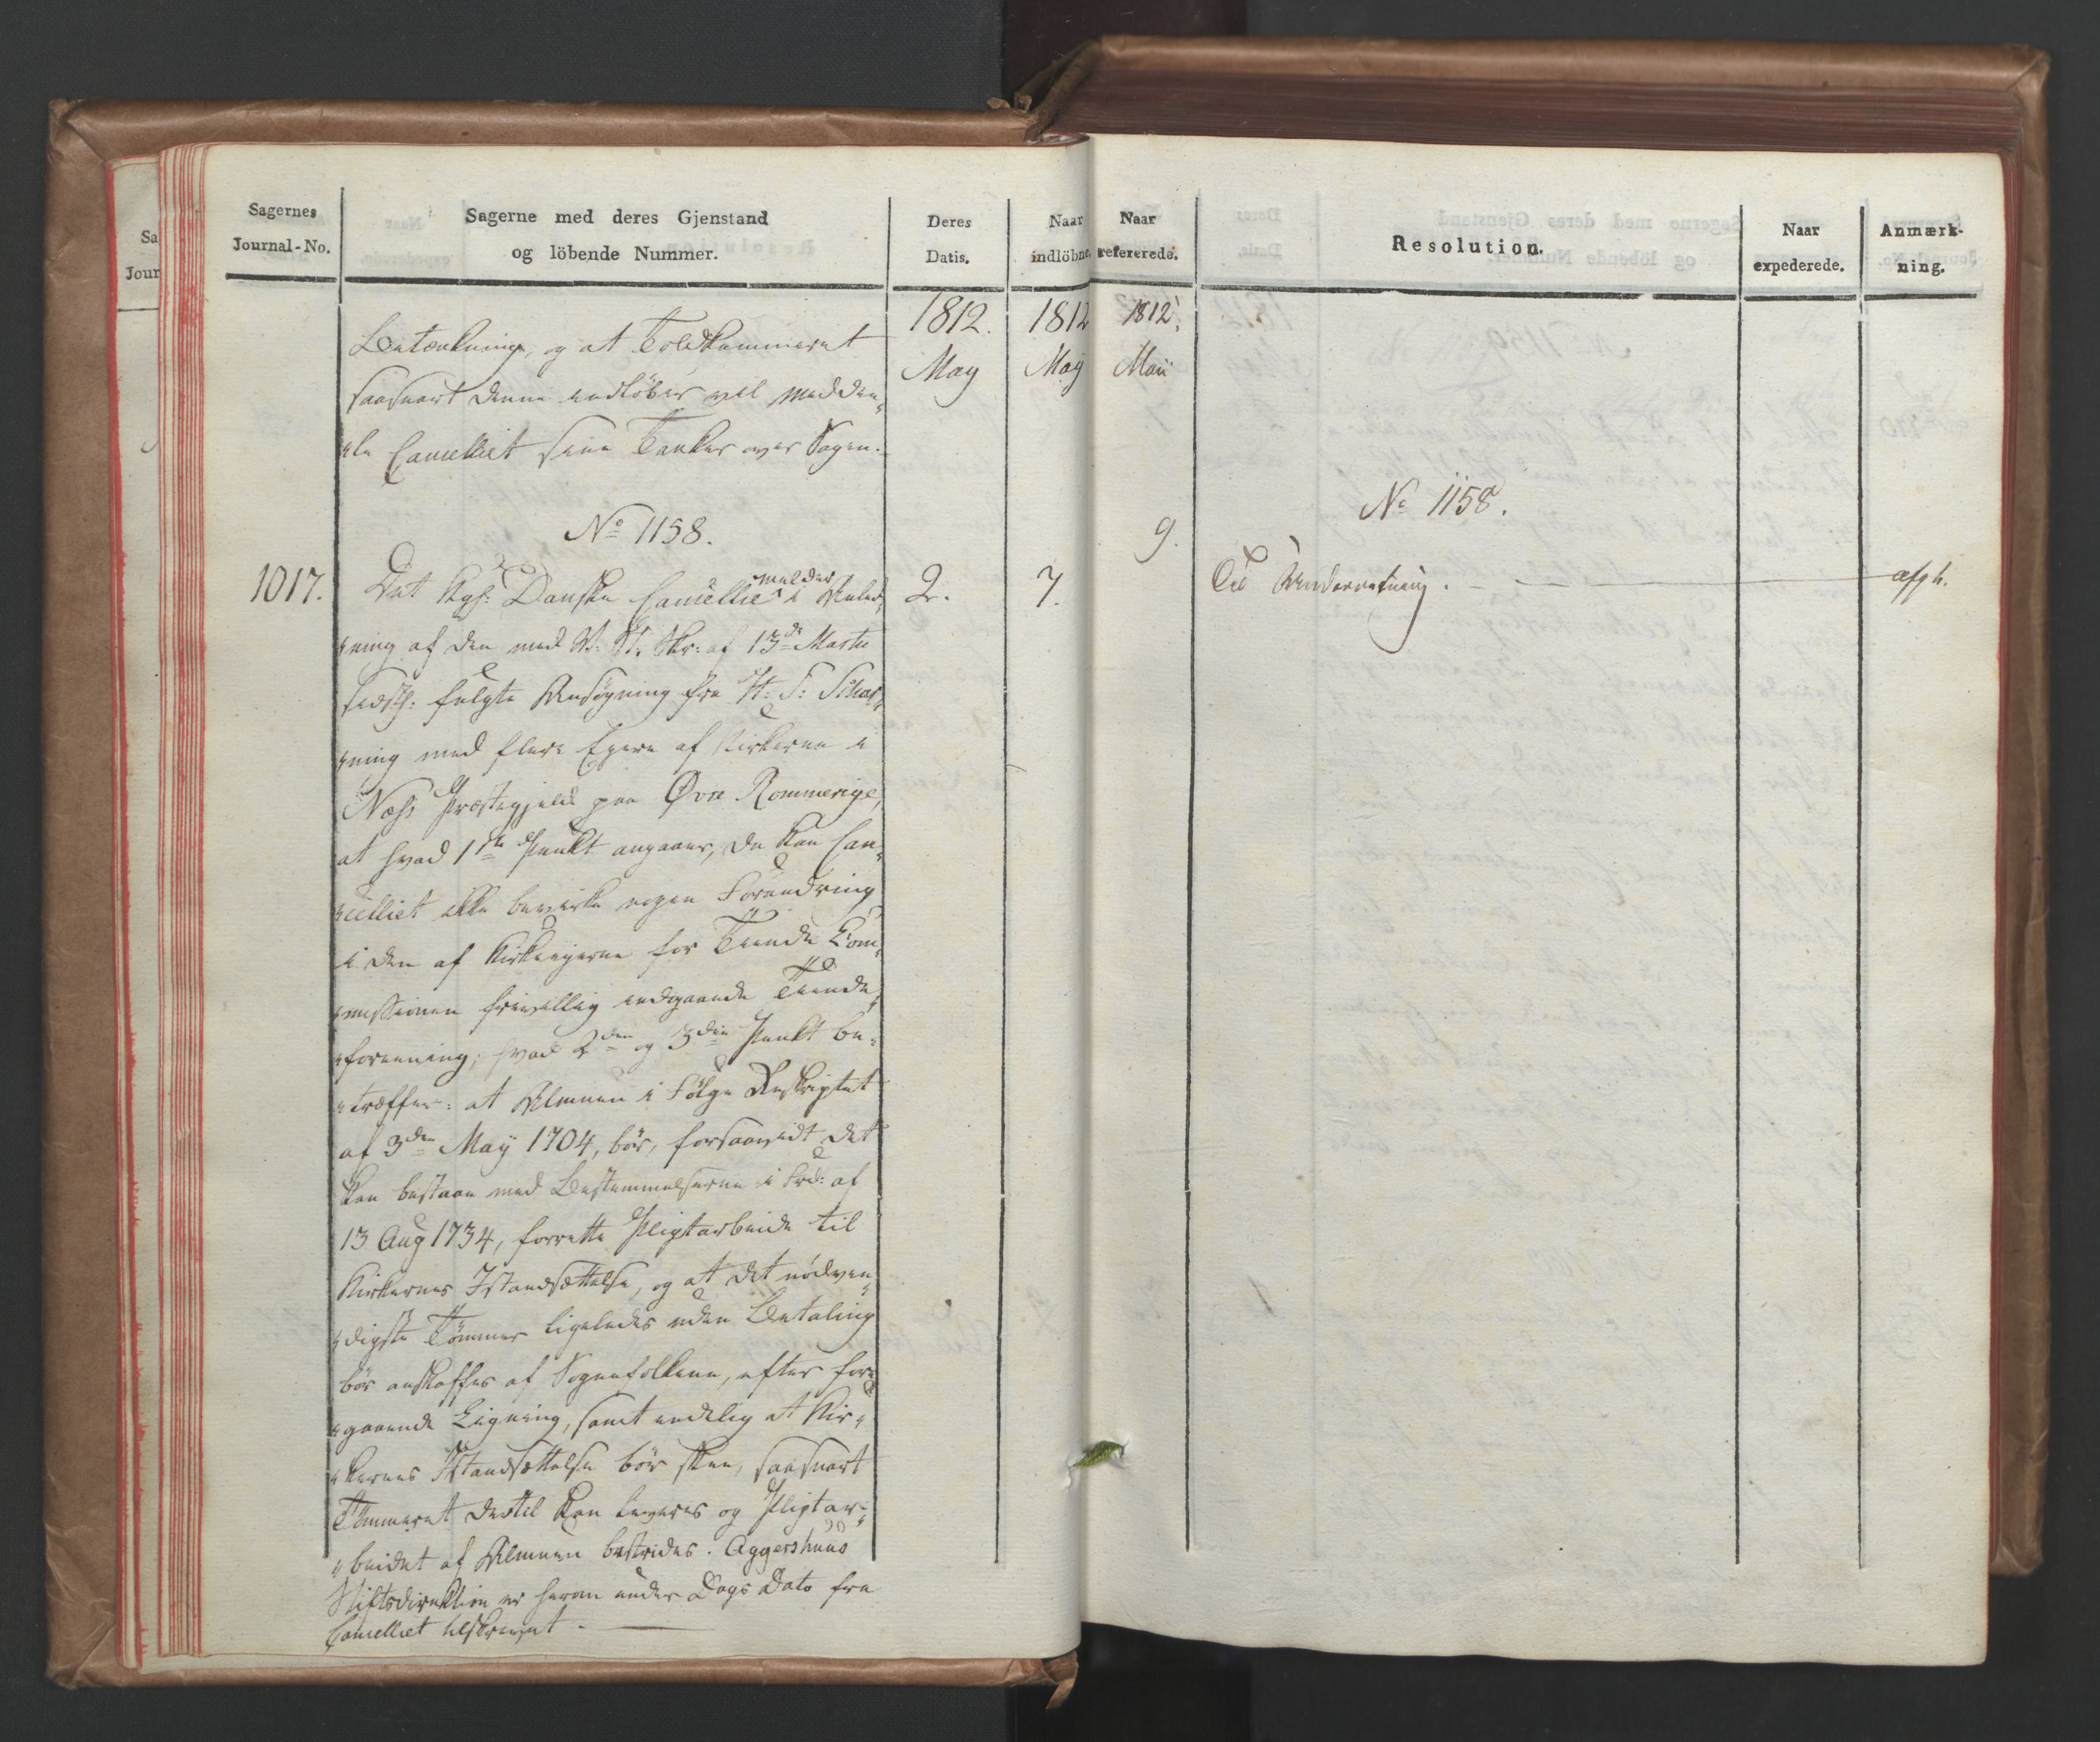 Sagernes
Journal-No.
Sagerne med deres Gjenstand
og löbende Nummer.
Deres
Datis.
Naar
indlöbne.
Naar
refererede.
Resolution.
Naar
expederede.
Anmærk-
ning.
Sa
Jour
1812.
May
1812
May
1812.
Maii
Betænkning, og at Toldkammeret
saasnart denne indløber vil medde„
„le Cancelliet sine Tanker over Sagen.
No 1158.
1017.
Det Kgl: Danske Cancellie melder i Anled„
2.
7.
„ning af den med R: St. Skr: af 13de Martii
sidstl: fulgte Ansøgning fra H: S: Schar„
„ning med flere Eyere af Kirkerne i
Næss Præstegjeld paa Øvre Rommerige,
at hvad 1ste Punkt angaaer, da kan Can„
„celliet ikke bevirke nogen Forandring
i den af Kirkeeyerne for Tiende Com„
„missionen frivillig indgaaende Tiende„
„forening; hvad 2den og 3die Punkt be„
„træffer: at Almuen i Følge Reskriptet
af 3den May 1704, bör, forsaavidt det
kan bestaae med Bestemmelserne i Frd: af
13 Aug 1734, forrette Pligtarbeide til
Kirkernes Istandsættelse, og at det nødven„
„digste Tømmer ligeledes uden Betaling
bör anskaffes af Sognefolkene, efter fore„
„gaaende Ligning, samt endelig at Kir„
„kernes Istandsættelse bör skee, saasnart
Tømmeret dertil kan leveres og Pligtar„
„beidet af Almuen bestrides. Aggershuus
Stiftsdirektion er herom under Dags Dato fra
Cancelliet tilskrevet.
9.
No 1158.
Til Underretning.
afgh.